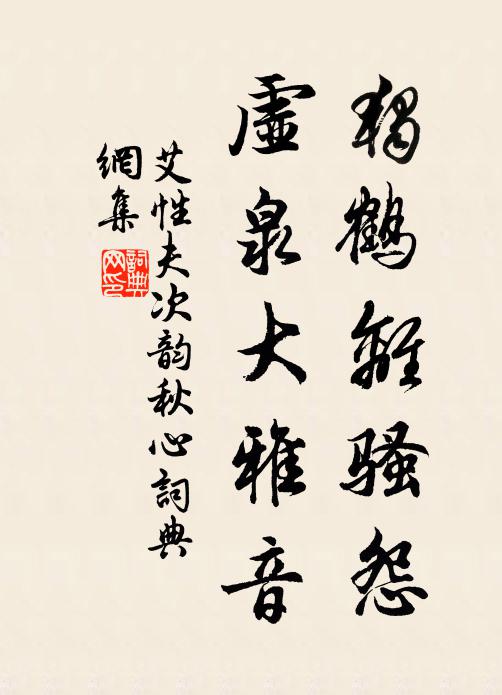 獨鶴離騷怨
虛泉大雅音
艾性夫次韵秋心詞典
網集
詞典
网印